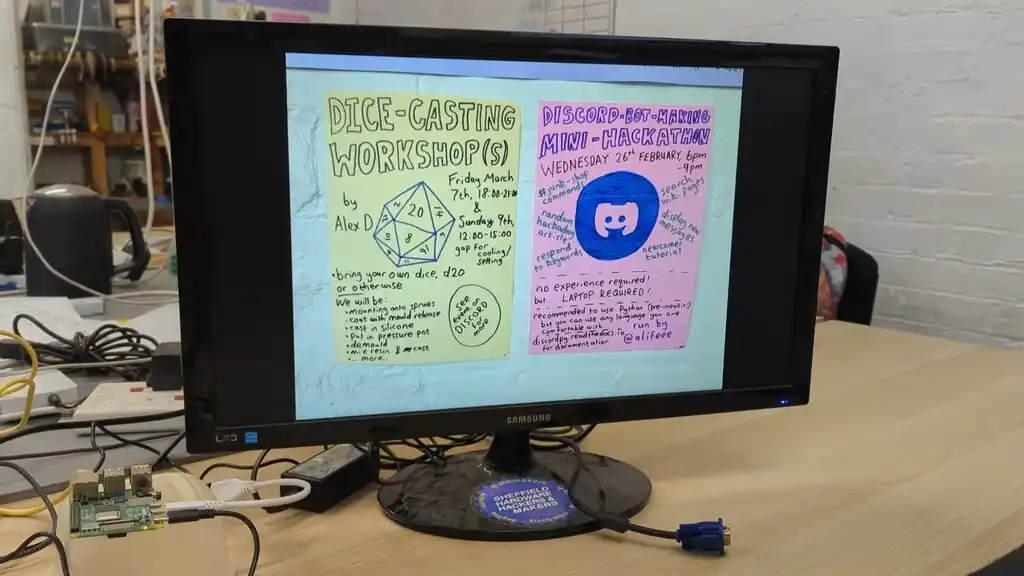 DICE-CASTING
WORKSHOP(S)
by
Alex D
Friday March
7th, 18:00-21:00
&
Sunday 9th,
12:00-15:00
gap for
cooling/
setting
20
8
• bring your own dice, d20
or otherwise
We will be:
• mounting onto sprues
• coat with mould release
• cast in silicone
• put in pressure pot
• demould
• mix resin & cast
... more
see
DISCORD
for
more
DISCORD-BOT-MAKING
MINI-HACKATHON
WEDNESDAY 26th FEBRUARY, 6pm
-9pm
#junk-shop
commands
random
hackaday
articles
respond
to keywords
search
wiki pages
display new
messages
newcomer
tutorial
no experience required!
but LAPTOP REQUIRED!
recommended to use Python (pre-install)
but you can use any language you are
comfortable with
discordpy.readthedocs.io
for documentation
run by
@alifeee
SAMSUNG
LED
SHEFFIELD
HARDWARE
HACKERS &
MAKERS